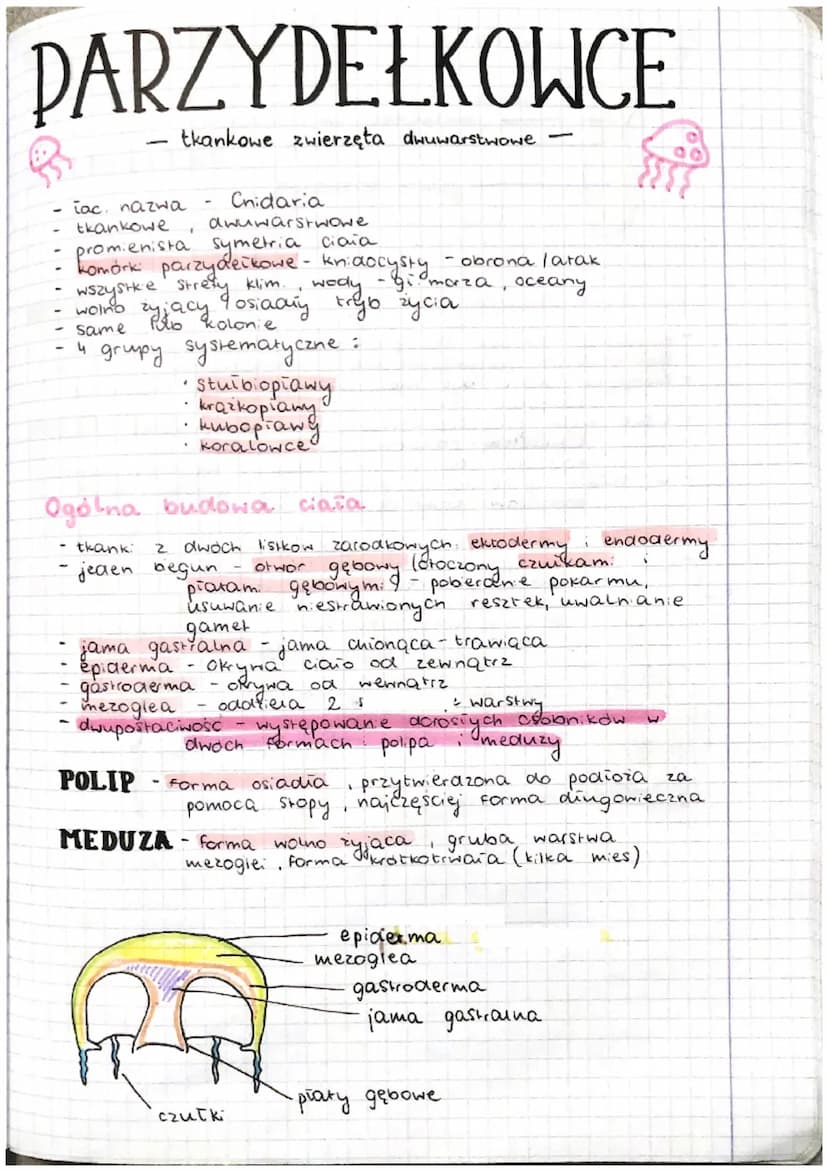 PARZYDEŁKOWCE
— tkankowe zwierzęta dwuwarstwowe —
- łac. nazwa - Cnidaria
- tkankowe, dwuwarstwowe
- promienista symetria ciała
- komórki parzydełkowe - knidocysty - obrona/atak
- wszystkie strefy klim., wody - gł. morza, oceany
- wolno żyjący / osiadły tryb życia
- same lub kolonie
- 4 grupy systematyczne:
· stułbiopławy
· krążkopławy
· kubopławy
· koralowce
Ogólna budowa ciała
- tkanki z dwóch listków zarodkowych: ektodermy i endodermy
- jeden biegun - otwór gębowy (otoczony czułkami i
płatami gębowymi) - pobieranie pokarmu,
usuwanie niestrawionych resztek, uwalnianie
gamet
- jama gastralna - jama chłonąco-trawiąca
- epiderma - okrywa ciało od zewnątrz
- gastroderma - okrywa od wewnątrz
- mezoglea - oddziela 2 warstwy
- dwupostaciowość - występowanie dorosłych osobników w
dwóch formach: polipa i meduzy
POLIP - forma osiadła, przytwierdzona do podłoża za
pomocą stopy, najczęściej forma długowieczna
MEDUZA - forma wolno żyjąca, gruba warstwa
mezoglei, forma krótkotrwała (kilka mies)
epiderma
mezoglea
gastroderma
jama gastralna
płaty gębowe
czułki